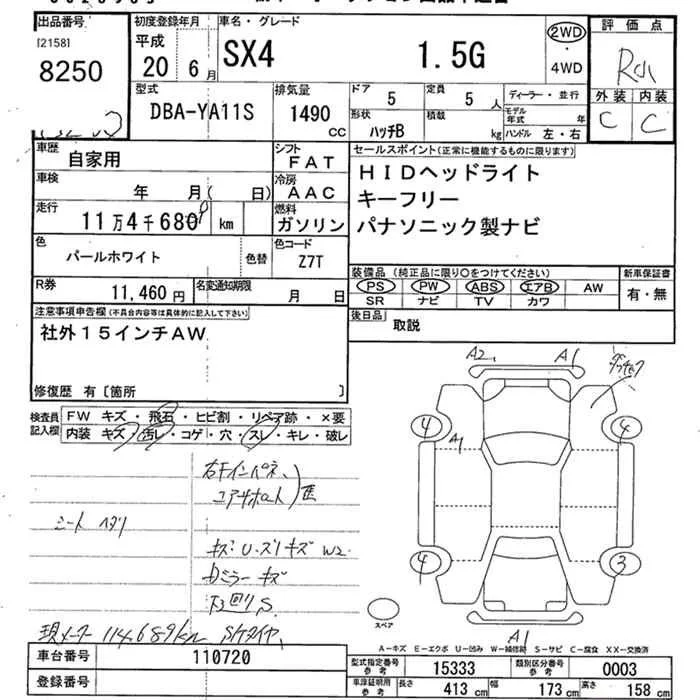 出品番号 初度登録年月 車名・グレード 評価点
[2158] 平成 SX4 1.5G 2WD・4WD
8250 20年6月 外装 内装
C C
型式 排気量 ドア 定員 ディーラー・並行
DBA-YA11S 1490cc 5 5人 モデル年式 年
形状 ハッチB 積載 kg ハンドル 左・右
車歴 自家用 シフト FAT セールスポイント(正常に機能するものに限ります)
車検 年 月( 日) 冷房 AAC HIDヘッドライト
走行 11万4千680 km 燃料 ガソリン キーフリー
パナソニック製ナビ
色 パールホワイト 色替 色コード Z7T
装備品(純正品に限り○をつけてください) 新車保証書
PS PW ABS エアB AW 有・無
SR ナビ TV カワ
R券 11,460円 名変通知期限 月 日
後日品 取説
注意事項申告欄(不具合内容等は具体的に記入して下さい)
社外15インチAW
修復歴 有[箇所 ]
検査員記入欄 FW キズ・飛石・ヒビ割・リペア跡・×要
内装 キズ・汚レ・コゲ・穴・スレ・キレ・破レ
A2 A1
4 4
A1
4 3
A1
スペア
シート ヘタリ
キズ:U・スリキズ W2
ミラーキズ
下回りS
現メーター 114,689km
A-キズ E-エクボ U-凹み W-補修跡 S-サビ C-腐食 XX-交換済
車台番号 110720
登録番号
型式指定番号 参考 15333 類別区分番号 参考 0003
車庫証明用 参考 長さ 413cm 幅 173cm 高さ 158cm